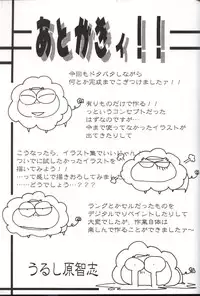 あとがきィ!!
今回もドタバタしながら
何とか完成までこぎつけましたァ!!
有りものだけで作る!!
っというコンセプトだった
はずなのですが、
今まで使ってなかったイラストが
出てきたりして
こうなったら、イラスト集でいいじゃん
ついでに試したかったイラストを
描いてみよう!!
…って感じで描きおろしてみました
……どうでしょう…???
ラングとかセルだったものを
デジタルでリペイントしたりして
大変でしたが、作業自体は
楽しんで作ることができましたァ〜
うるし原智志